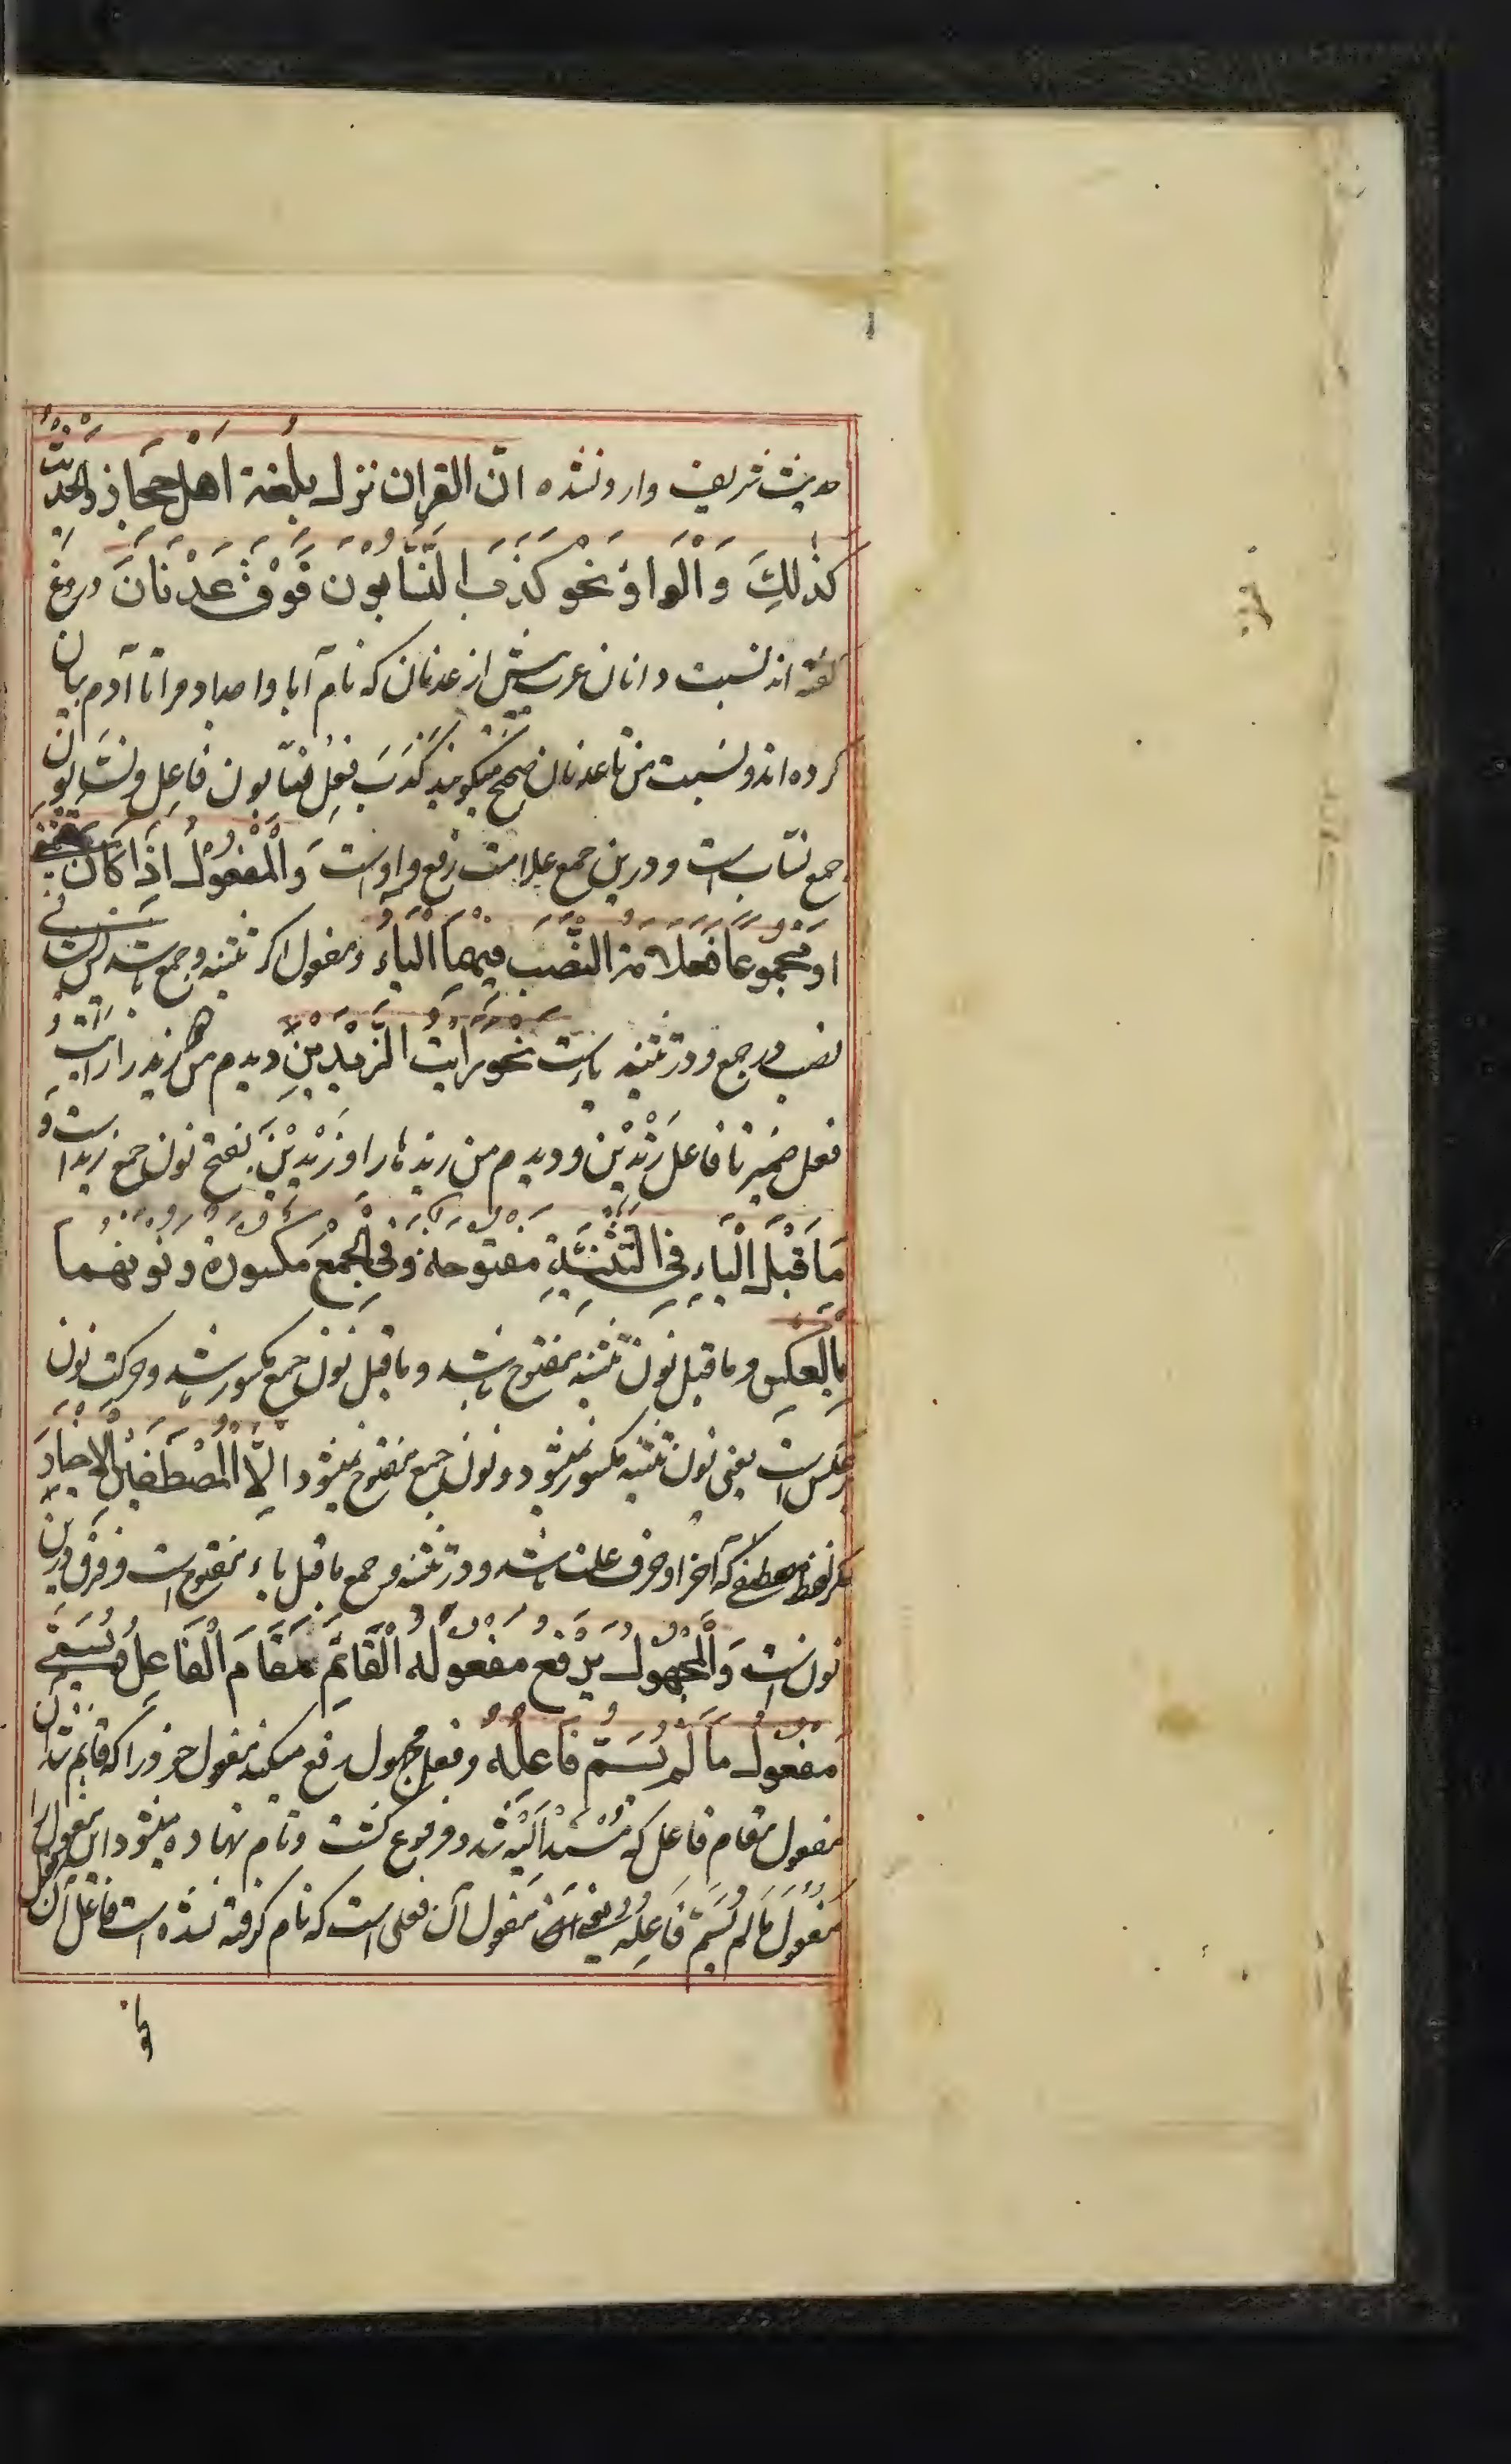 حدیث شریف وارد نشده انّ القران نزل بلُغة اَهْل حجَاز والحدیثُ
کذلِكَ وَالْواوُ نحْو کَذَبَ النَّسَّابُونَ فَوْقَ عَدْنَانَ دروغ
گفته اند نسبت دانان عرب پیش از عدنان که نام آبا و اجداد مرا تا آدم بیان
کرده اند و نسبت من تا عدنان صحیح میگویند کَذَبَ فعل نسّابون فاعل و نسّابون
جمع نسّاب است و درین جمع علامت رفع واو است وَالْمَفعُولُ اِذَا کَانَ
اَوْ مَجْمُوعًا فَعَلَامَة النَّصْبَ فِیهِمَا الْیَاءُ و مفعول اگر تثنیه و جمع باشد پس
نصب در جمع و در تثنیه یاست نَحْو رَأَیْتُ الزَّیْدَیْنِ دیدم من زید را رأیتُ
فعل ضمیر تا فاعل زَیْدَیْن و دیدم من زیدها را و زَیْدِیْنَ بفتح نون جمع زید است وَ
مَا قَبْلَ الْیَاءِ فِی التَّثْنِیَةِ مَفْتوحَة وَفِی الْجَمْعِ مَکسُورَة وَنُونهُما
بِالعکسِ و ما قبل نون تثنیه مفتوح باشد و ما قبل نون جمع مکسور باشد و حرکت نون
برعکس است یعنی نون تثنیه مکسور میشود و نون جمع مفتوح میشود اِلَّا الْمُصْطَفَیْنَ الاَخْیَارَ
مگر لفظ مصطفی که آخر او حرف علت باشد و در تثنیه و جمع ما قبل یاء مفتوح است و فرق درین
نون است وَالْمَجْهُولُ یَرْفَع مَفعُولُهُ الْقَائِمَ مَقَامَ الْفَاعِلُ وَیُسَمّٰی
مَفْعُولُ مَا لَمْ یُسَمَّ فَاعِلُهُ و فعل مجهول رفع میکند مفعول خود را که قایم شد آن
مفعول مقام فاعل که مُسْنَد اِلَیْه شد و مرفوع گشت و نام نهاده میشود این مفعول را
مفعول مَا لَمْ یُسَمَّ فَاعِلُه یعنی مفعول آن فعلی است که نام گرفته نشده است فاعل آن